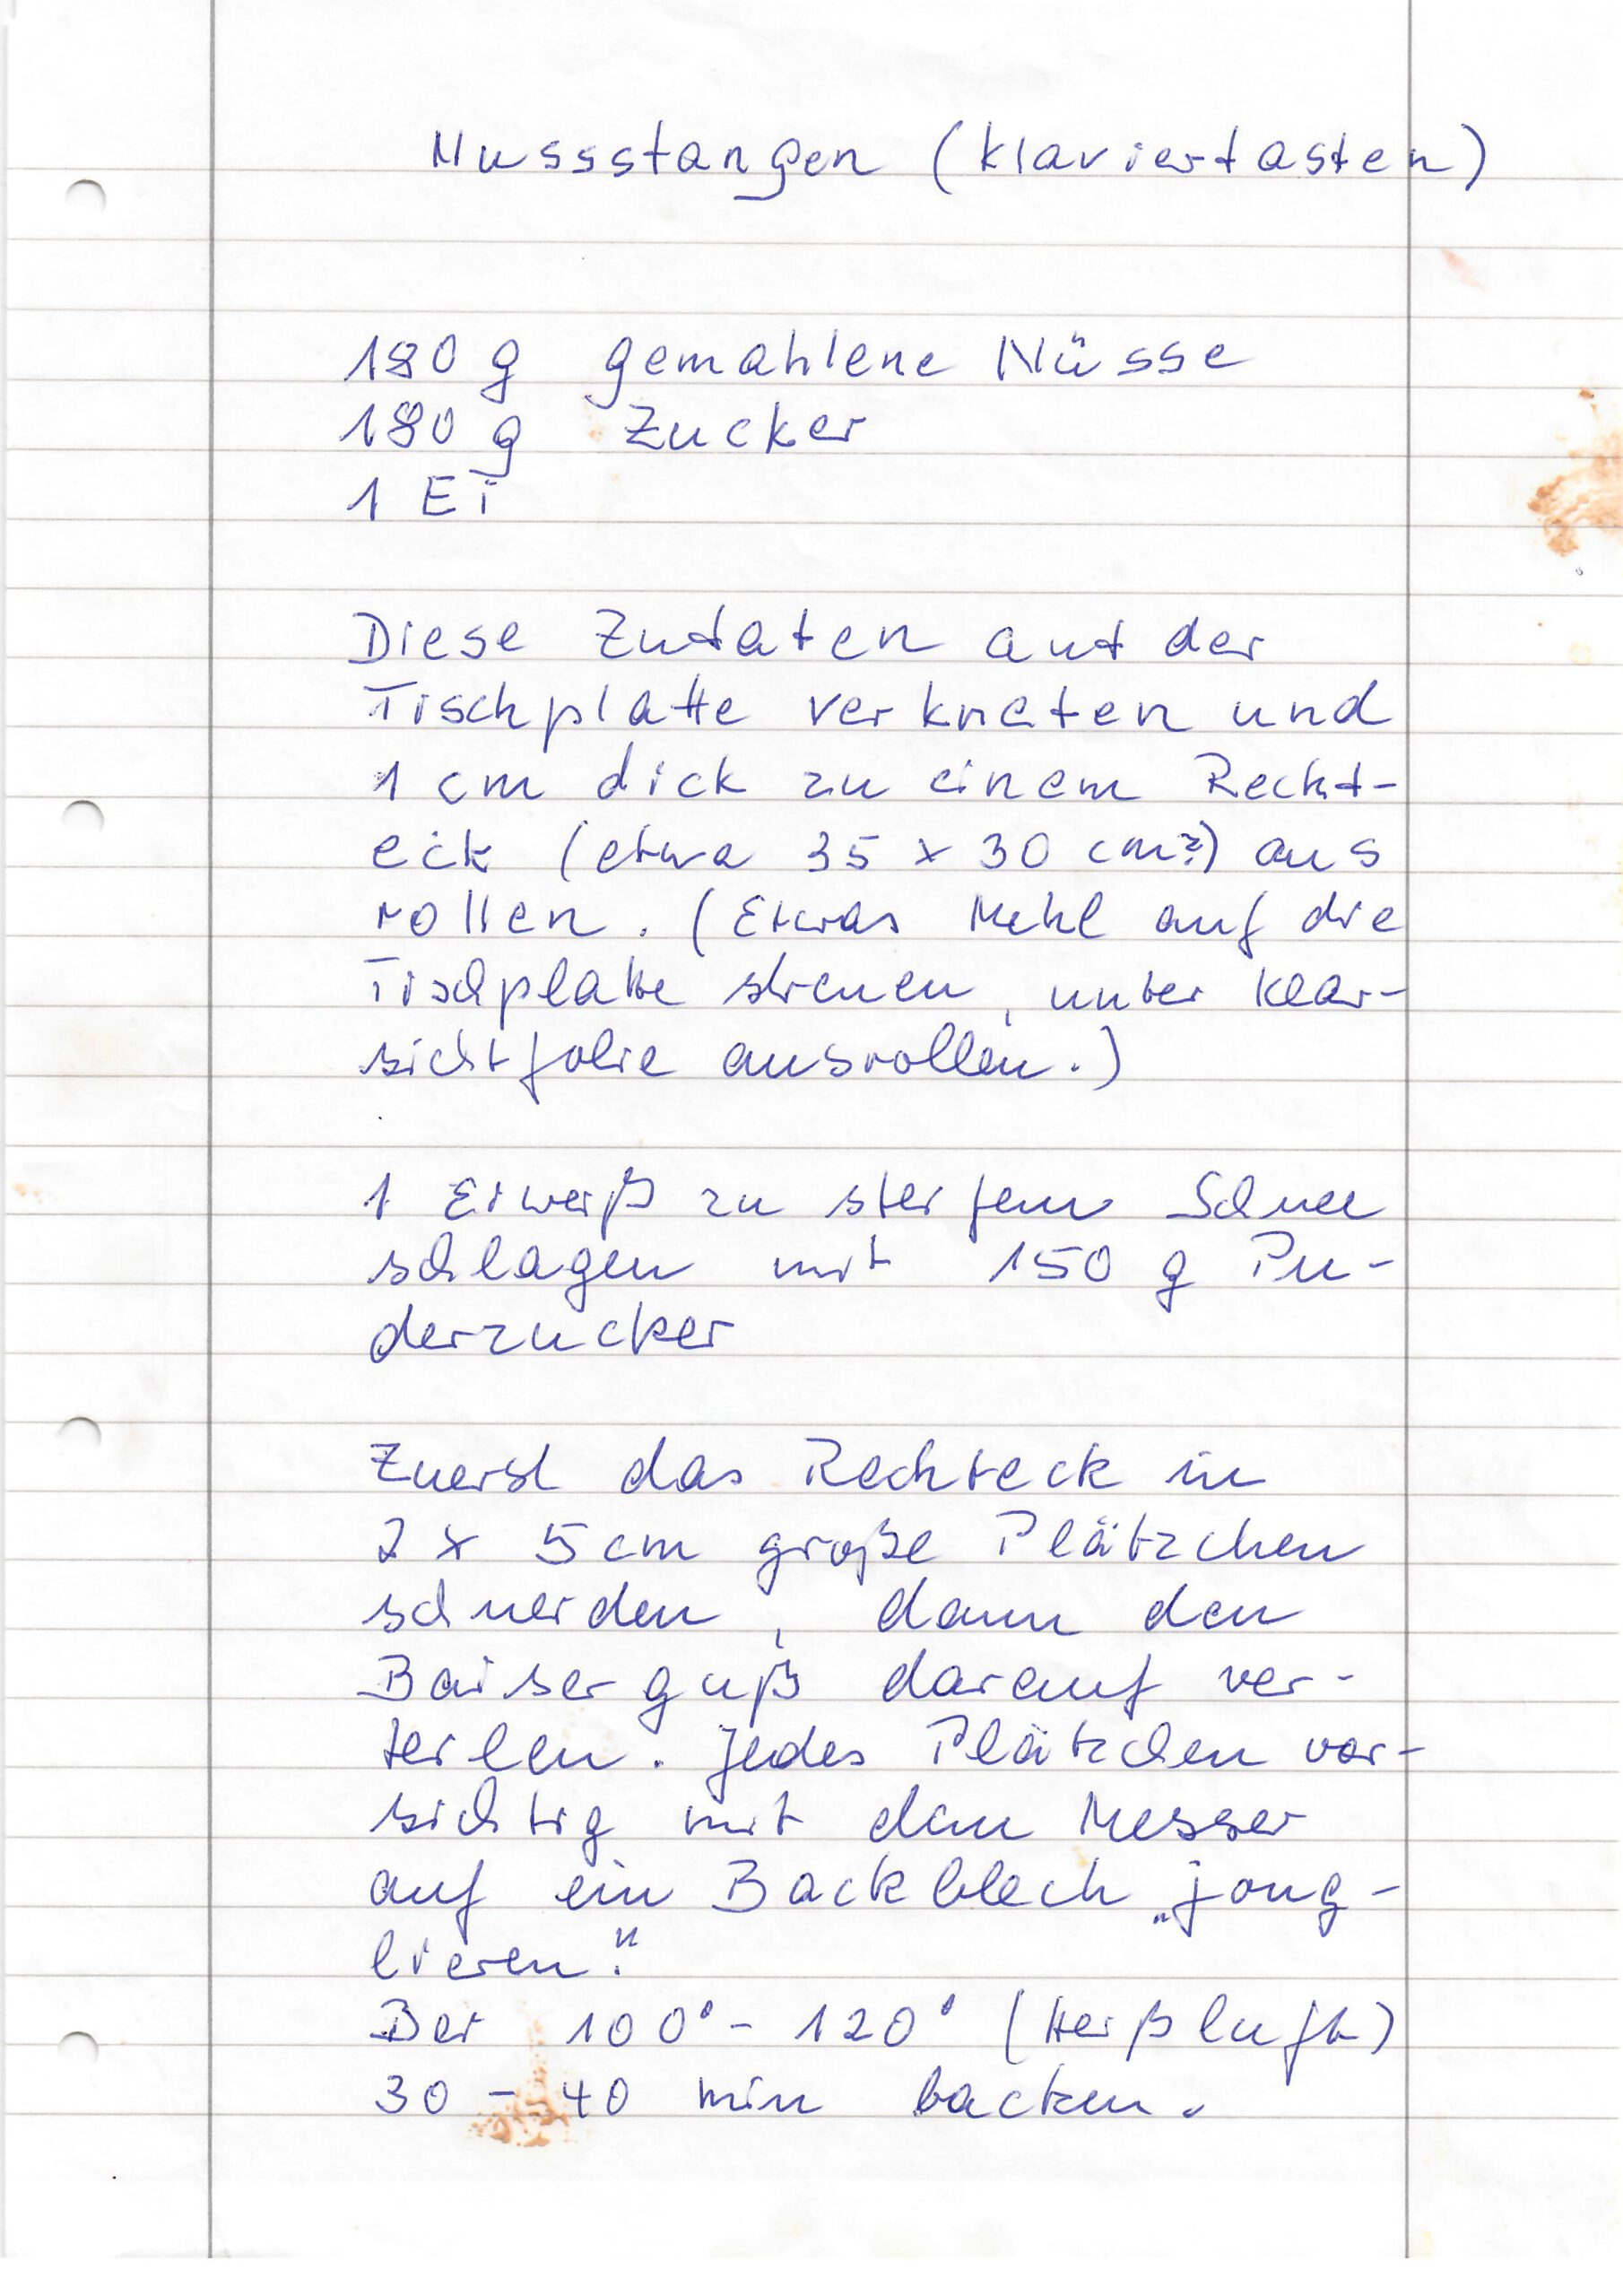 Nussstangen (Klaviertasten)
180 g gemahlene Nüsse
180 g Zucker
1 Ei
Diese Zutaten auf der
Tischplatte verkneten und
1 cm dick zu einem Recht-
eck (etwa 35 x 30 cm²) aus
rollen. (Etwas Mehl auf die
Tischplatte streuen, unter Klar-
sichtfolie ausrollen.)
1 Eiweiß zu steifem Schnee
schlagen mit 150 g Pu-
derzucker
Zuerst das Rechteck in
2 x 5 cm große Plätzchen
schneiden, dann den
Baiserguß darauf ver-
teilen. Jedes Plätzchen vor-
sichtig mit dem Messer
auf ein Backblech „jong-
lieren".
Bei 100° - 120° (Heißluft)
30 - 40 min backen.